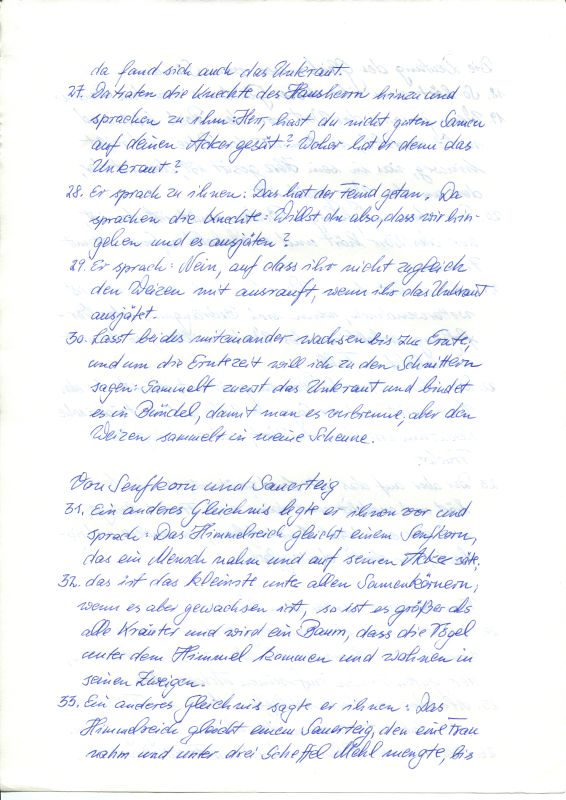 da fand sich auch das Unkraut.
27. Da traten die Knechte des Hausherrn hinzu und
sprachen zu ihm: Herr, hast du nicht guten Samen
auf deinen Acker gesät? Woher hat er denn das
Unkraut?
28. Er sprach zu ihnen: Das hat der Feind getan. Da
sprachen die Knechte: Willst du also, dass wir hin-
gehen und es ausjäten?
29. Er sprach: Nein, auf dass ihr nicht zugleich
den Weizen mit ausrauft, wenn ihr das Unkraut
ausjätet.
30. Lasst beides miteinander wachsen bis zur Ernte;
und um die Erntezeit will ich zu den Schnittern
sagen: Sammelt zuerst das Unkraut und bindet
es in Bündel, damit man es verbrenne, aber den
Weizen sammelt in meine Scheune.
Von Senfkorn und Sauerteig
31. Ein anderes Gleichnis legte er ihnen vor und
sprach: Das Himmelreich gleicht einem Senfkorn,
das ein Mensch nahm und auf seinen Acker säte,
32. das ist das kleinste unter allen Samenkörnern;
wenn es aber gewachsen ist, so ist es größer als
alle Kräuter und wird ein Baum, dass die Vögel
unter dem Himmel kommen und wohnen in
seinen Zweigen.
33. Ein anderes Gleichnis sagte er ihnen: Das
Himmelreich gleicht einem Sauerteig, den eine Frau
nahm und unter drei Scheffel Mehl mengte, bis